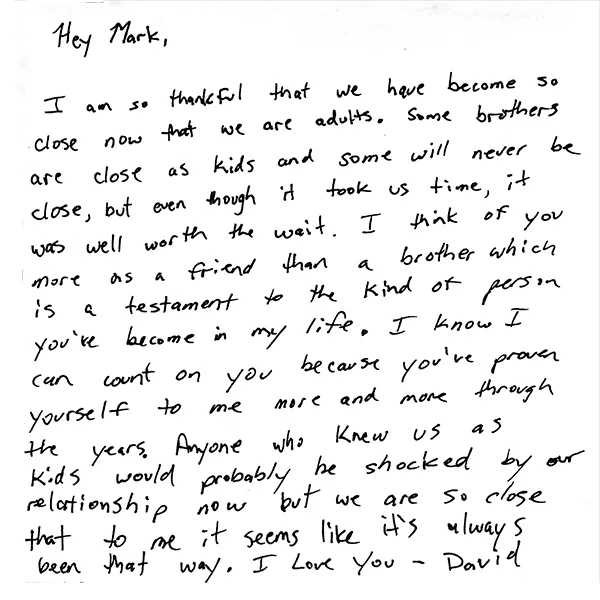 Hey Mark,
I am so thankful that we have become so
close now that we are adults. Some brothers
are close as kids and some will never be
close, but even though it took us time, it
was well worth the wait. I think of you
more as a friend than a brother which
is a testament to the kind of person
you've become in my life. I know I
can count on you because you've proven
yourself to me more and more through
the years. Anyone who knew us as
kids would probably be shocked by our
relationship now but we are so close
that to me it seems like it's always
been that way. I Love You - David